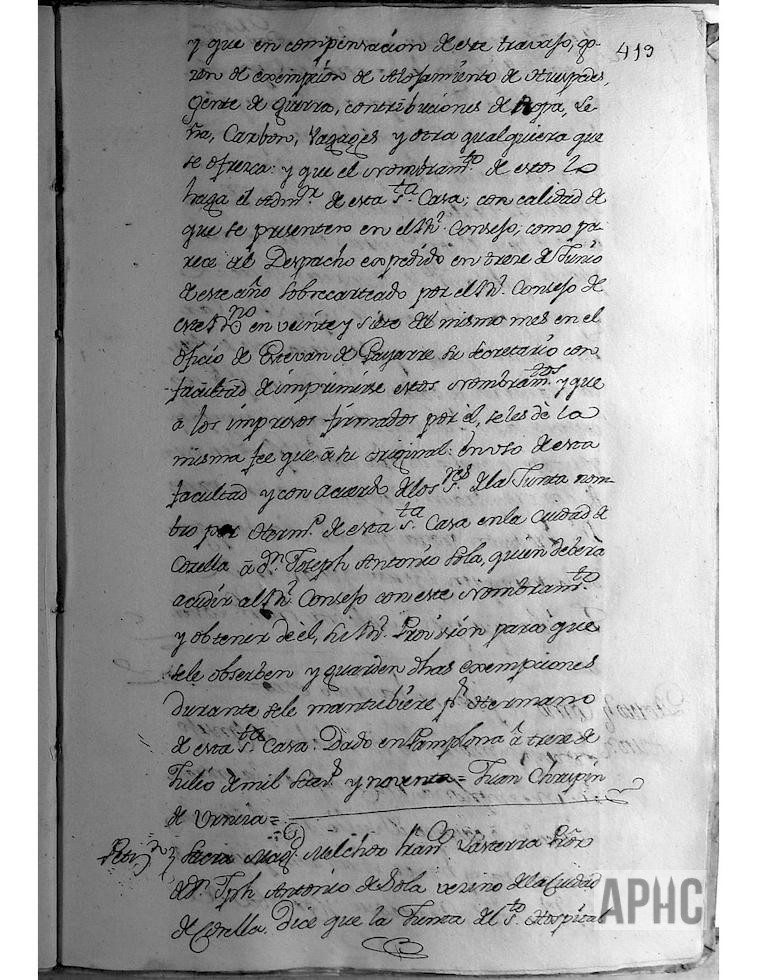 419
y que en compensacion de este travajo, go-
zen de exempcion de Alojamiento de Huespedes,
gente de guerra, contribuciones de Ropa, Le-
ña, Carbon, Vagages y otra qualquiera que
se ofrezca: y que el Nombram.to de estos lo
haga el Adm.r de esta S.ta Casa; con calidad de
que se presenten en el R.l Consejo, como pa-
rece del Despacho expedido en treze de Junio
de este año sobrecarteado por el R.l Consejo de
este R.no en veinte y siete del mismo mes en el
oficio de Estevan de Gayarre su Secretario con
facultad de imprimirse estos Nombram.tos y que
a los impresos firmados por el, se les dè la
misma fee que â su original: en uso de esta
facultad y con acuerdo de los S.res de la Junta nom-
bro por Herm.o de esta S.ta Casa en la Ciudad de
Corella â d.n Joseph Antonio Sola, quien deberà
acudir al R.l Consejo con este Nombram.to
y obtener de èl, su R.l Provision para que
se le observen y guarden dhas exempciones
durante se le mantubiere p.r Hermano
de esta S.ta Casa: Dado en Pamplona â treze de
Julio de mil Setez.s y noventa = Juan Chrispin
de Urniza =
Petiz.n Sacra Mag.d Melchor Fran.co Lasterra Pròr
de d.n Jph Antonio de Sola vezino de la Ciudad
de Corella. Dice que la Junta del S.to Hospital
APHC